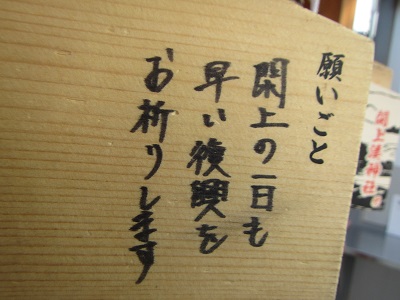 願いごと
閖上の一日も
早い復興を
お祈りします
閖上湊神社